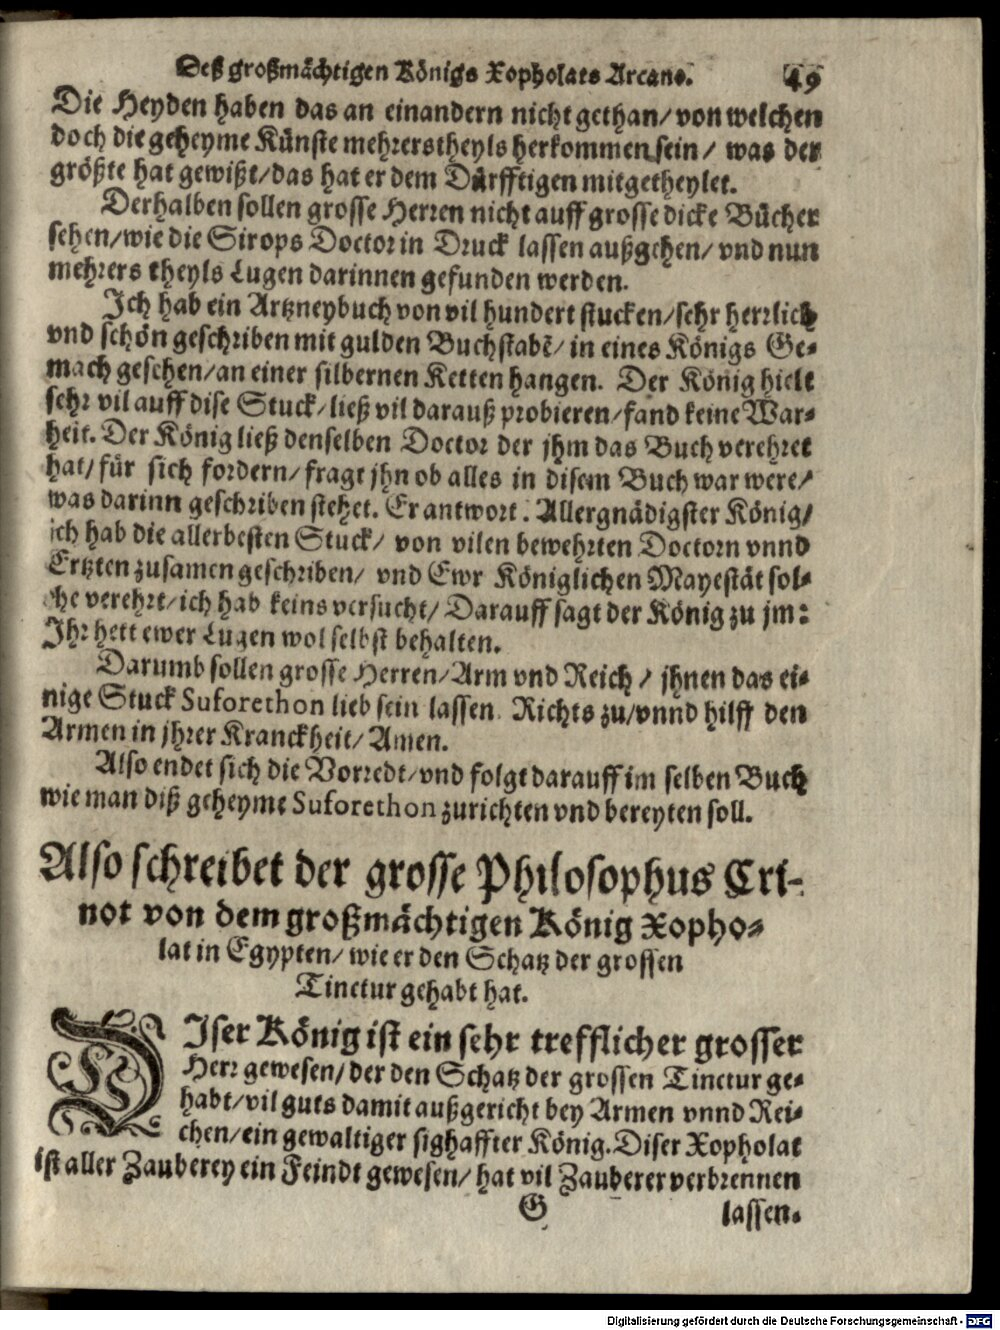 Deß großmächtigen Königs Xopholats Arcano. 49
Die Heyden haben das an einandern nicht gethan/ von welchen
doch die geheyme Künste mehrerstheyls herkommen sein/ was der
größte hat gewißt/ das hat er dem Dürfftigen mitgetheylet.
Derhalben sollen grosse Herren nicht auff grosse dicke Bücher
sehen/ wie die Sirops Doctor in Druck lassen außgehen/ vnd nun
mehrers theyls Lugen darinnen gefunden werden.
Ich hab ein Artzneybuch von vil hundert stucken/ sehr herrlich
vnd schön geschriben mit gulden Buchstabẽ/ in eines Königs Ge-
mach gesehen/ an einer silbernen Ketten hangen. Der König hielt
sehr vil auff dise Stuck/ ließ vil darauß probieren/ fand keine War-
heit. Der König ließ denselben Doctor der jhm das Buch verehret
hat/ für sich fordern/ fragt jhn ob alles in disem Buch war were/
was darinn geschriben stehet. Er antwort. Allergnädigster König/
ich hab die allerbesten Stuck/ von vilen bewehrten Doctorn vnnd
Ertzten zusamen geschriben/ vnd Ewr Königlichen Mayestät sol-
che verehrt/ ich hab keins versucht/ Darauff sagt der König zu jm:
Ihr hett ewer Lugen wol selbst behalten.
Darumb sollen grosse Herren/ Arm vnd Reich/ jhnen das ei-
nige Stuck Suforethon lieb sein lassen. Richts zu/ vnnd hilff den
Armen in jhrer Kranckheit/ Amen.
Also endet sich die Vorredt/ vnd folgt darauff im selben Buch
wie man diß geheyme Suforethon zurichten vnd bereyten soll.
Also schreibet der grosse Philosophus Cri-
not von dem großmächtigen König Xopho-
lat in Egypten/ wie er den Schatz der grossen
Tinctur gehabt hat.
DIser König ist ein sehr trefflicher grosser
Herr gewesen/ der den Schatz der grossen Tinctur ge-
habt/ vil guts damit außgericht bey Armen vnnd Rei-
chen/ ein gewaltiger sighaffter König. Diser Xopholat
ist aller Zauberey ein Feindt gewesen/ hat vil Zauberer verbrennen
G lassen.
Digitalisierung gefördert durch die Deutsche Forschungsgemeinschaft - DFG